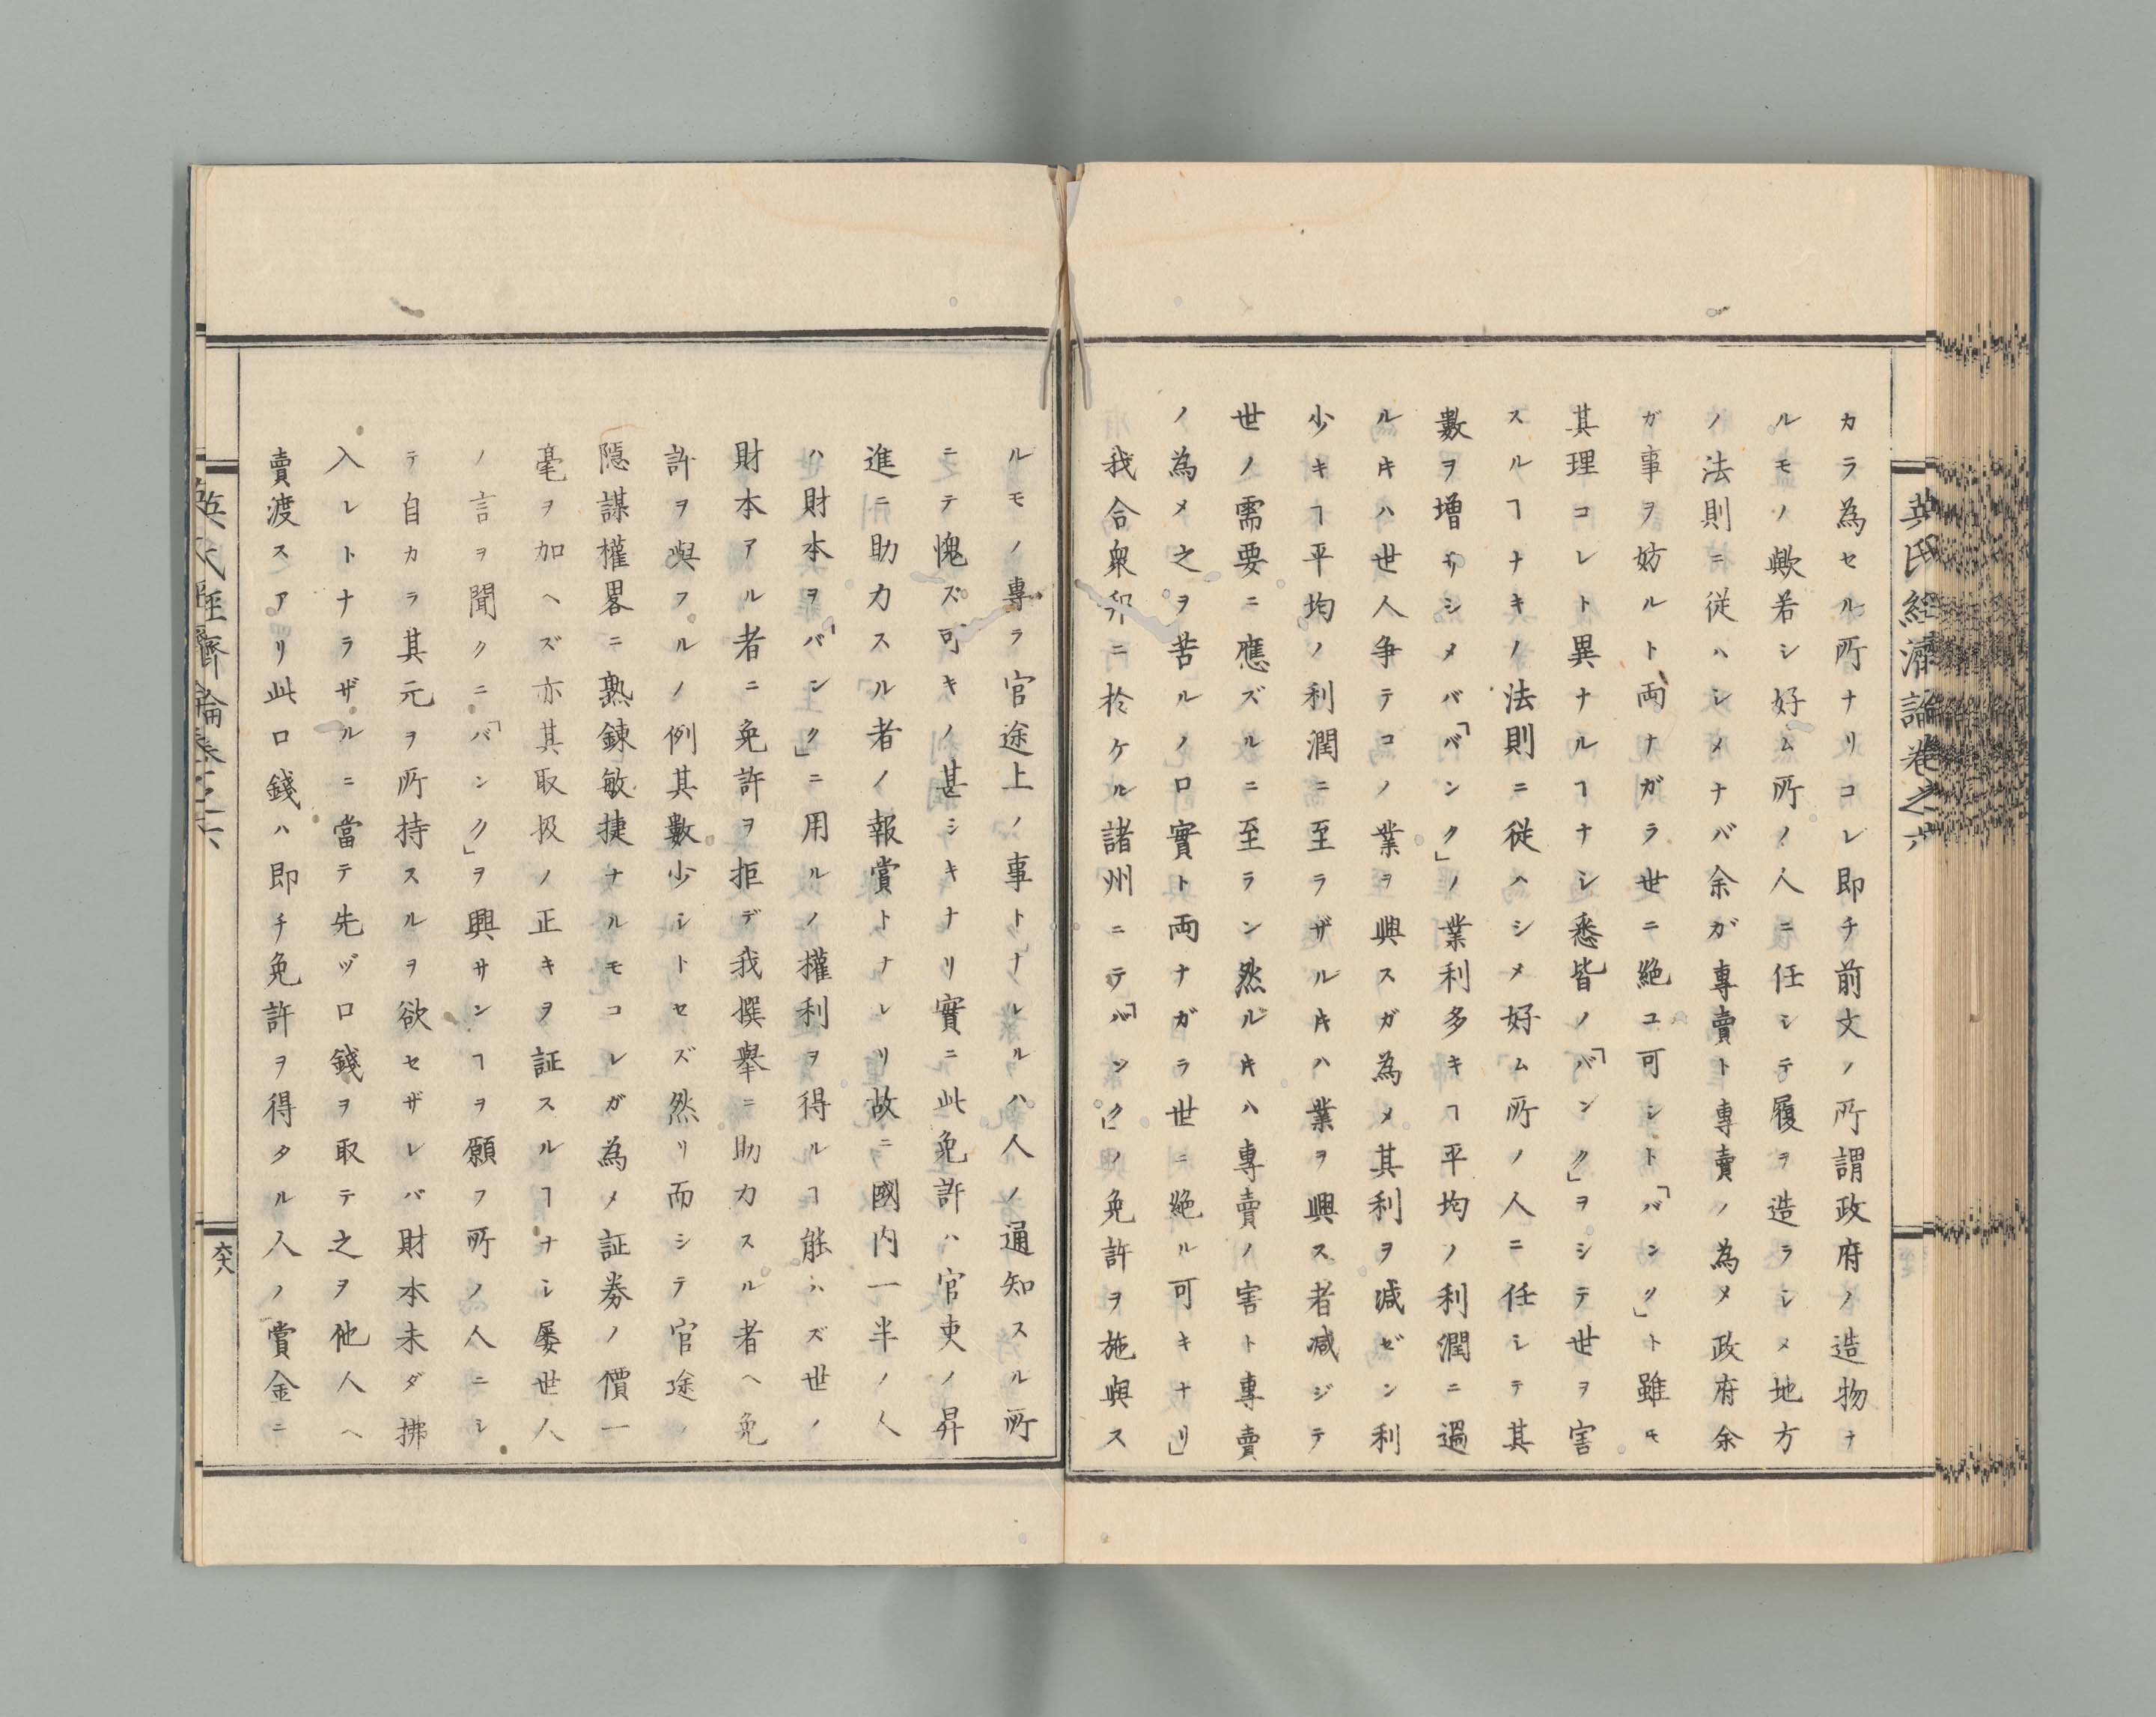 英氏經濟論卷之六
カラ為セル所ナリコレ即チ前文ノ所謂政府ノ造物ナ
ルモノ歟若シ好ム所ノ人ニ任シテ履ヲ造ラシメ地方
ノ法則ニ従ハシメナバ余ガ專賣ト專賣ノ為メ政府余
ガ事ヲ妨ルト両ナガラ世ニ絶ユ可シト「バンク」ト雖モ
其理コレト異ナルヿナシ悉皆ノ「バンク」ヲシテ世ヲ害
スルヿナキノ法則ニ従ハシメ好ム所ノ人ニ任シテ其
數ヲ増サシメバ「バンク」ノ業利多キヿ平均ノ利潤ニ過
ルキハ世人争テコノ業ヲ興スガ為メ其利ヲ減ゼン利
少キヿ平均ノ利潤ニ至ラザルキハ業ヲ興ス者減ジテ
世ノ需要ニ應ズルニ至ラン然ルキハ專賣ノ害ト專賣
ノ為メ之ヲ苦ルノ口實ト両ナガラ世ニ絶ル可キナリ」
我合衆邦ニ於ケル諸州ニテ「バンク」ノ免許ヲ施與ス
ルモノ專ラ官途上ノ事トナレルハ人ノ通知スル所
ニテ愧ズ可キノ甚シキナリ實ニ此免許ハ官吏ノ昇
進ニ助カスル者ノ報賞トナレリ故ニ國内一半ノ人
ハ財本ヲ「バンク」ニ用ルノ權利ヲ得ルヿ能ハズ世ノ
財本アル者ニ免許ヲ拒デ我撰擧ニ助カスル者ヘ免
許ヲ與フルノ例其數少シトセズ然リ而シテ官途ノ
隠謀權畧ニ熟錬敏捷ナルモコレガ為メ証券ノ價一
毫ヲ加ヘズ亦其取扱ノ正キヲ証スルヿナシ屡世人
ノ言ヲ聞クニ「バンク」ヲ興サンヿヲ願フ所ノ人ニシ
テ自カラ其元ヲ所持スルヲ欲セザレバ財本未ダ拂
入レトナラザルニ當テ先ヅ口錢ヲ取テ之ヲ他人ヘ
賣渡スアリ此口錢ハ即チ免許ヲ得タル人ノ賞金ニ
英氏經齊論卷之六
六十八